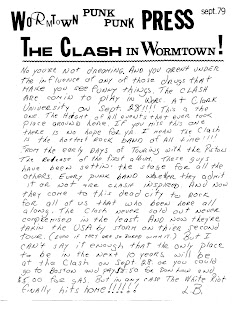 WORMTOWN PUNK PUNK PRESS sept.79
THE CLASH IN WORMTOWN!
No youre not dreaming. And you arent under
the influence of any of those drugs that
make you see funny things. The CLASH
are coming to play in Worc. At Clark
University on Sept. 28!!!! This is the
one. The Height of all events that ever took
place around here. If you miss this one
there is no hope for ya. I mean The Clash
is the hottest rock band of all time!!!!
From the early days of Touring with the Pistols
The Release of the first album. These guys
have been setting the stage for all the
others. Every punk band whether they admit
it or not are Clash inspired. And now
they come to this dead city to rock
for all of us that who been here all
along. The Clash never sold out never
compromised in the least. And now they're
takin the USA by storm on there second
tour. But I
can't say it enough that the only place
to be in the next 10 years will be
at the Clash on Sept 28. or you could
go to Boston and pay for Don Law and
for gas. But in any case The White Riot
finally hits home!!!!!!
LB